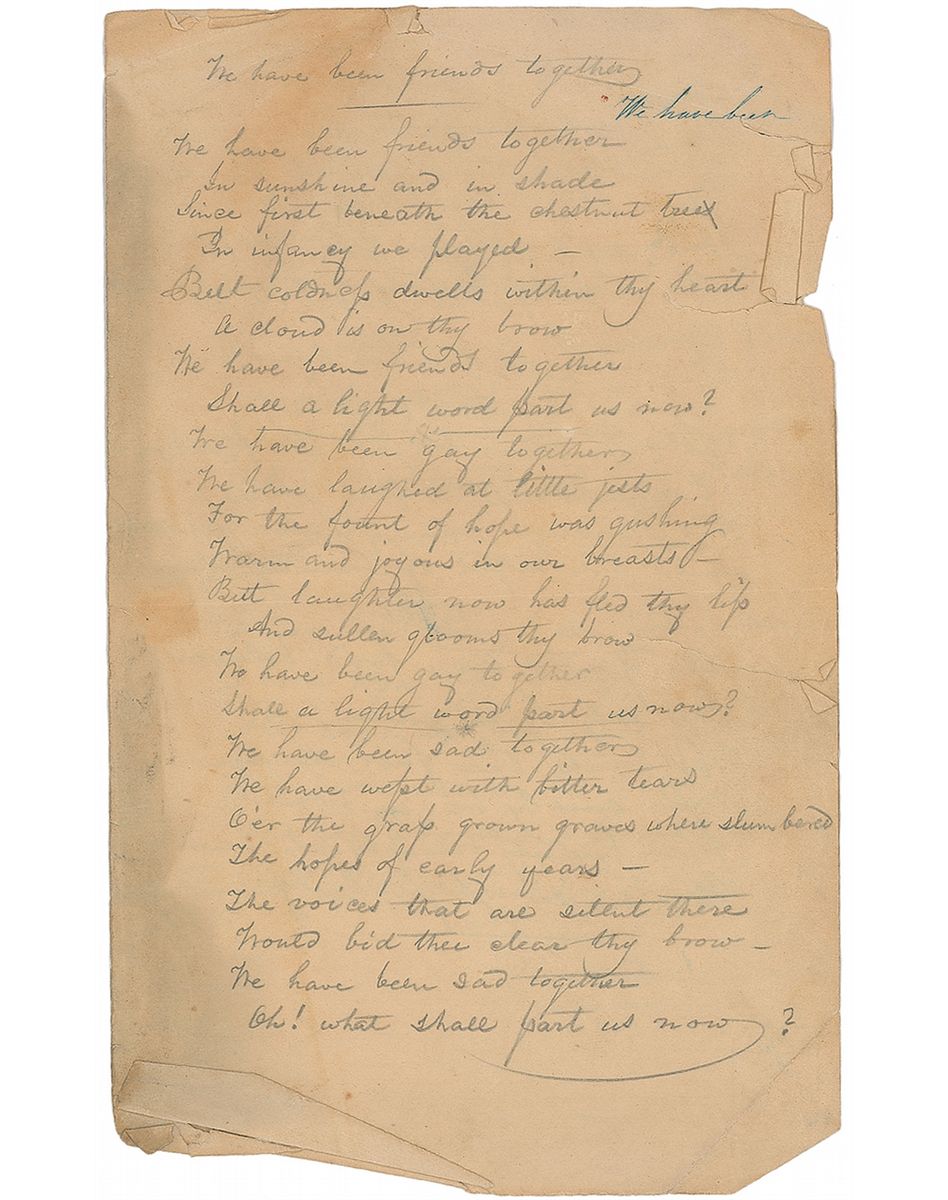 We have been friends together
We have been
We have been friends together
In sunshine and in shade
Since first beneath the chestnut tree
In infancy we played —
But coldness dwells within thy heart
A cloud is on thy brow
We have been friends together
Shall a light word part us now?
We have been gay together
We have laughed at little jests
For the fount of hope was gushing
Warm and joyous in our breasts —
But laughter now has fled thy lip
And sullen glooms thy brow —
We have been gay together
Shall a light word part us now?
We have been sad together
We have wept with bitter tears
O'er the grass grown graves where slumbered
The hopes of early years —
The voices that are silent there
Would bid thee clear thy brow —
We have been sad together
Oh! what shall part us now?